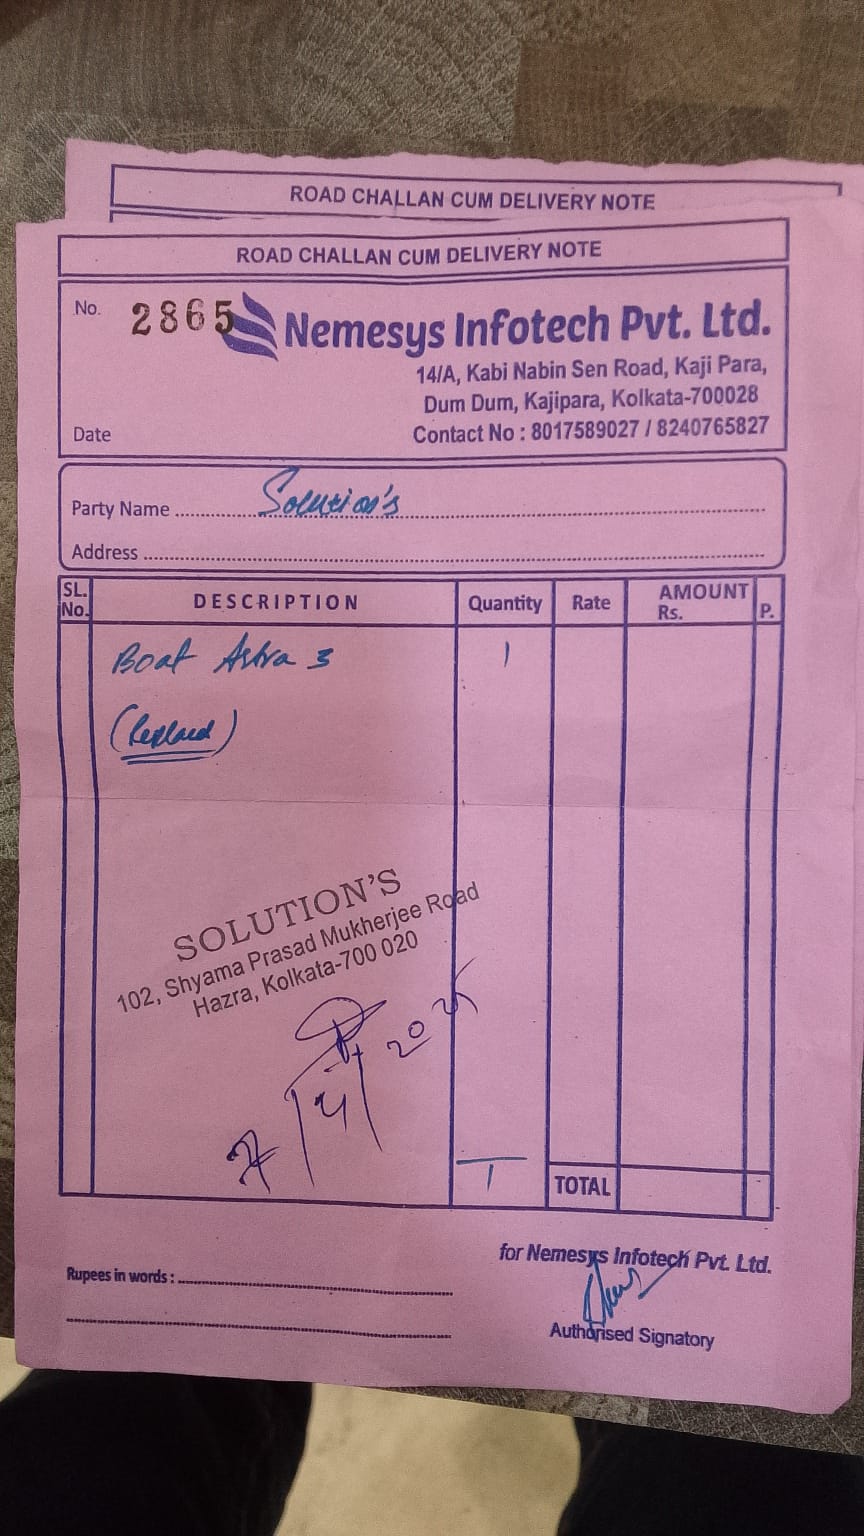 ROAD CHALLAN CUM DELIVERY NOTE
ROAD CHALLAN CUM DELIVERY NOTE
No. 2865
Nemesys Infotech Pvt. Ltd.
14/A, Kabi Nabin Sen Road, Kaji Para,
Dum Dum, Kajipara, Kolkata-700028
Date
Contact No : 8017589027 / 8240765827
Party Name Solution's
Address
SL. No. DESCRIPTION Quantity Rate AMOUNT Rs. P.
Boat Astra 3 1
SOLUTION'S
102, Shyama Prasad Mukherjee Road
Hazra, Kolkata-700 020
1 TOTAL
for Nemesys Infotech Pvt. Ltd.
Rupees in words :
Authorised Signatory